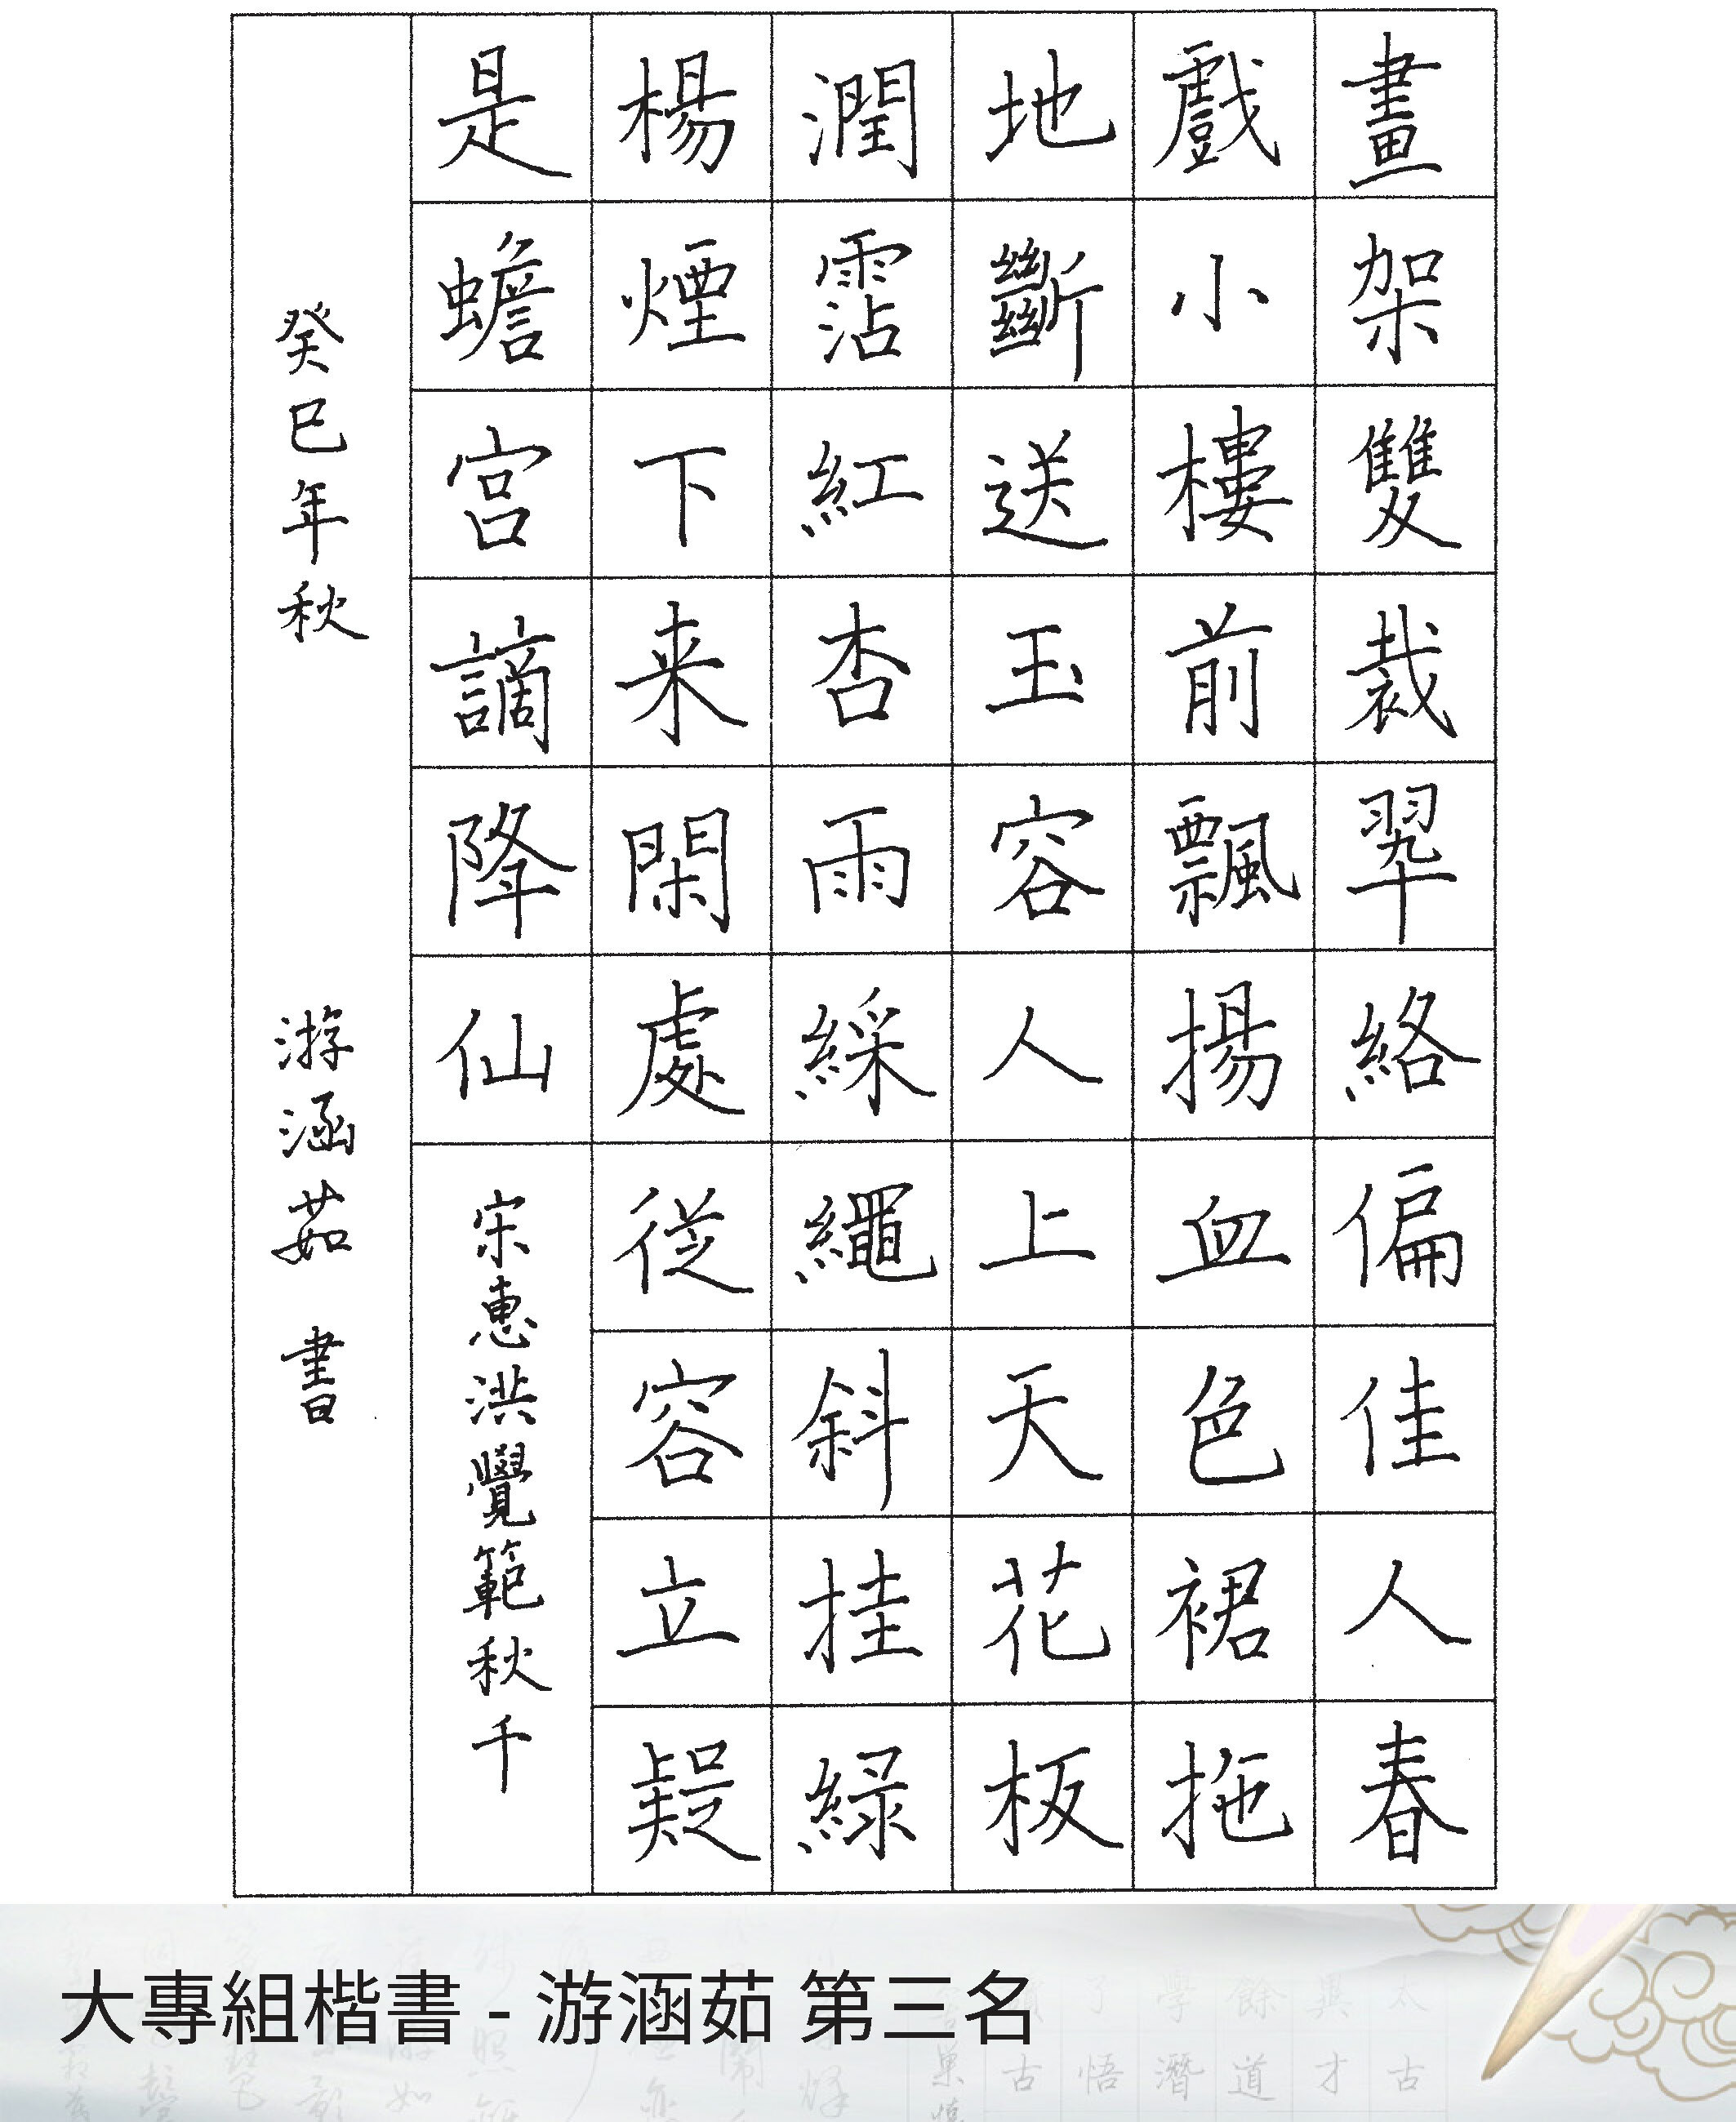 畫架雙裁翠絡偏佳人春
戲小樓前飄揚血色裙拖
地斷送玉容人上天花板
潤霑紅杏雨綵繩斜挂綠
楊煙下来閑處従容立疑
是蟾宮謫降仙 宋惠洪覺範秋千
癸巳年秋 游涵茹 書
大專組楷書 - 游涵茹 第三名